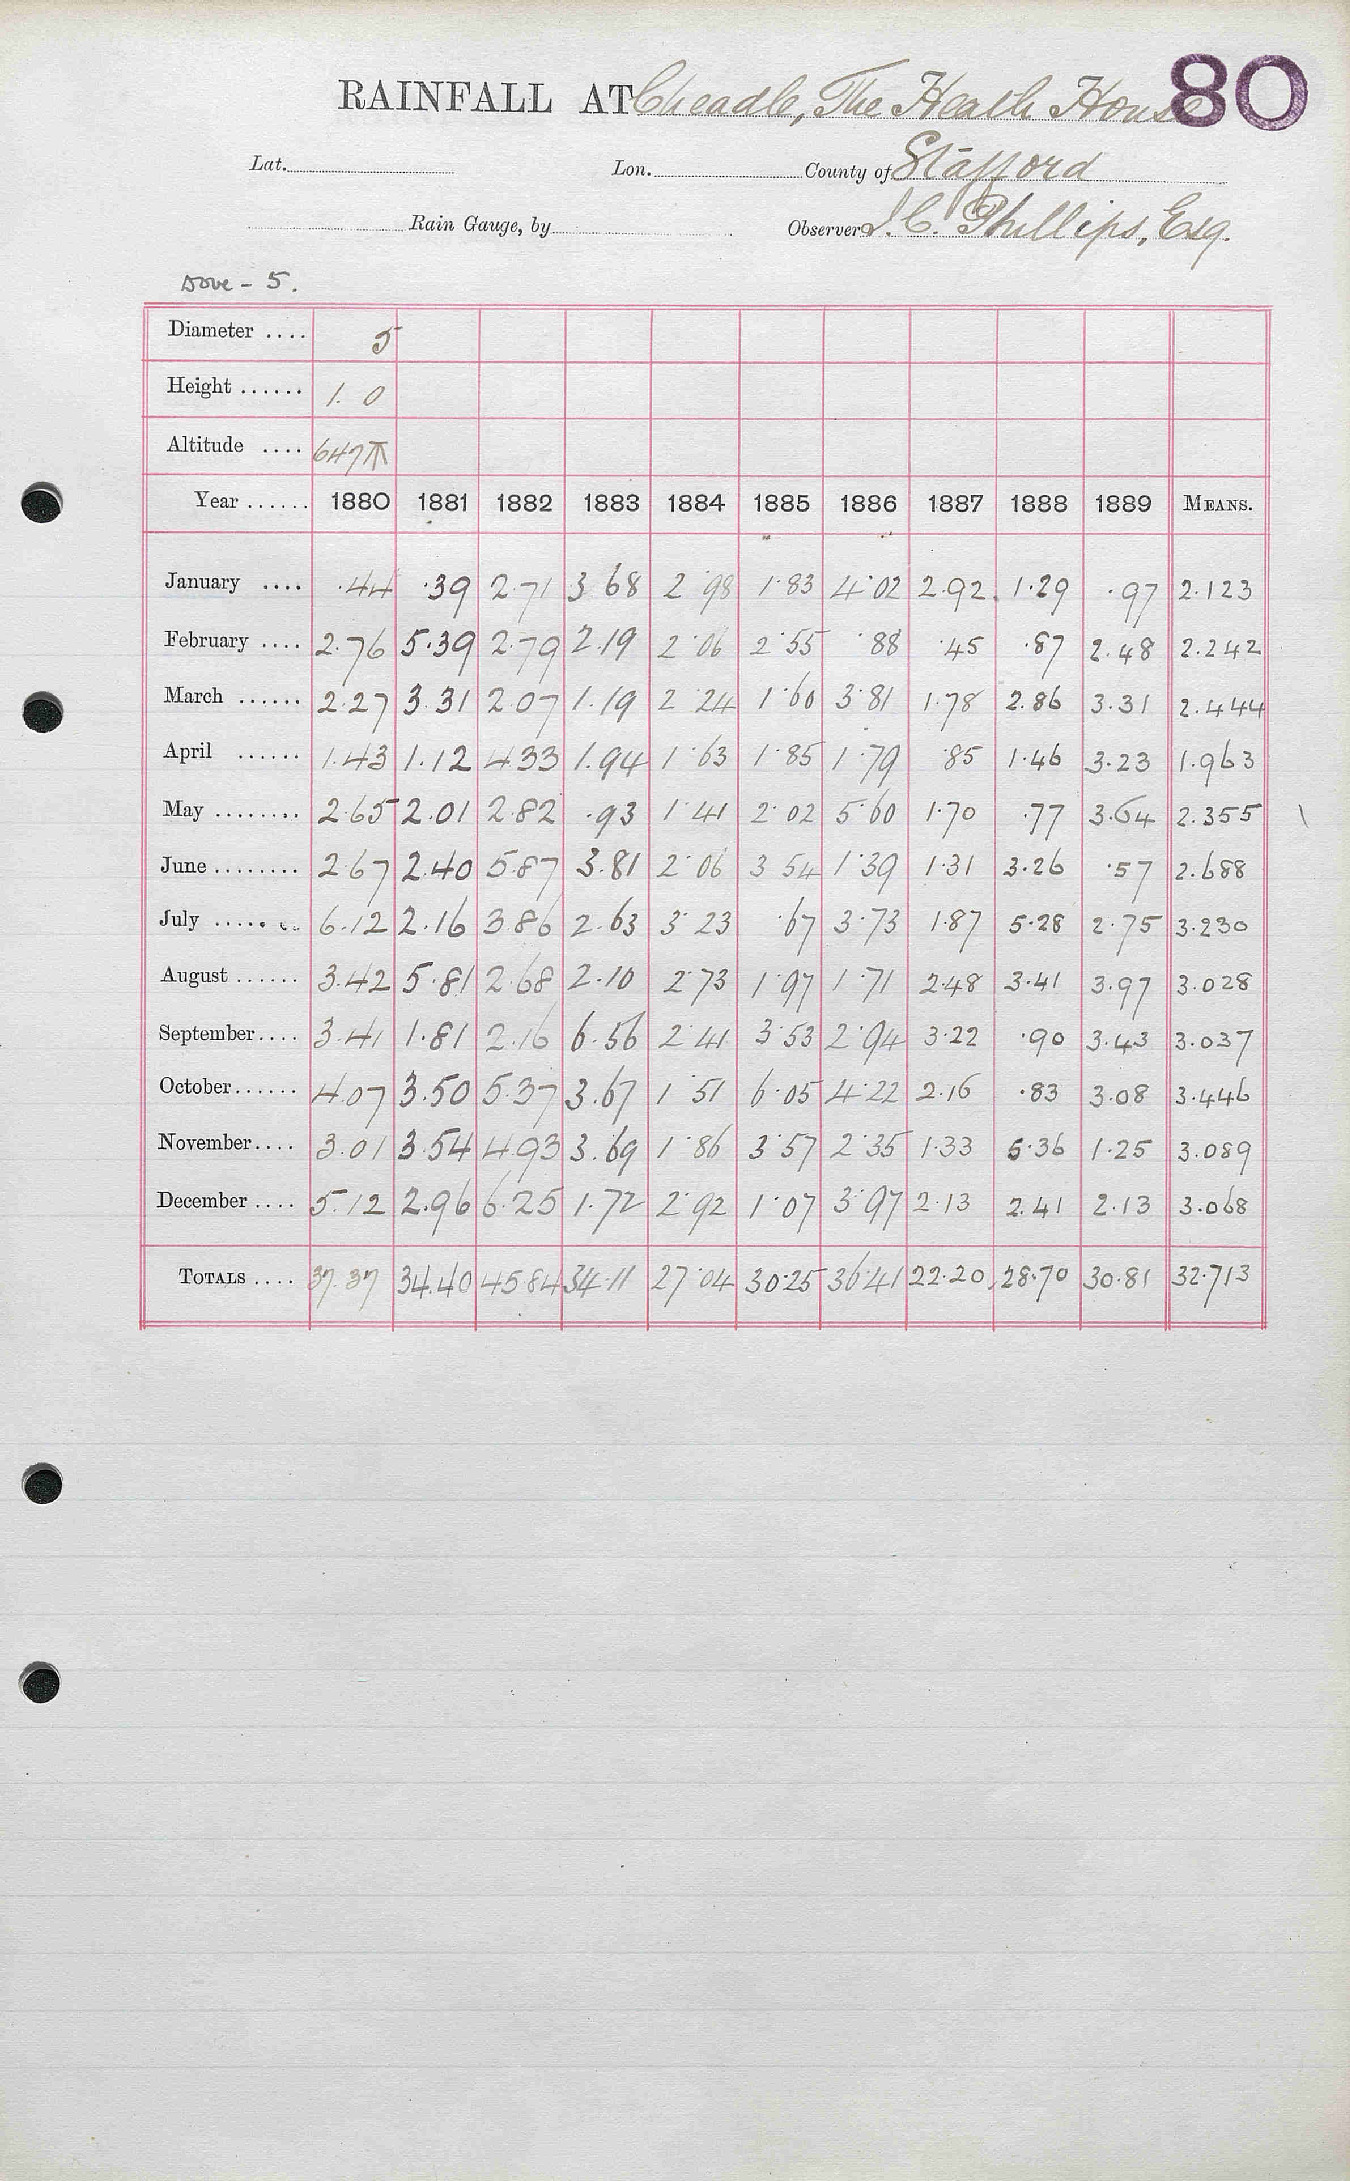 80
RAINFALL AT Cheadle, The Heath House
Lat. Lon. County of Stafford
Rain Gauge, by Observer J. C. Phillips, Esq.
Dove - 5.
Diameter .... 5
Height ...... 1. 0
Altitude .... 647
Year ...... 1880 1881 1882 1883 1884 1885 1886 1887 1888 1889 MEANS.
January .... .44 .39 2.71 3.68 2.98 1.83 4.02 2.92 1.29 .97 2.123
February .... 2.76 5.39 2.79 2.19 2.06 2.55 .88 .45 .87 2.48 2.242
March ...... 2.27 3.31 2.07 1.19 2.24 1.60 3.81 1.78 2.86 3.31 2.444
April ...... 1.43 1.12 4.33 1.94 1.63 1.85 1.79 .85 1.46 3.23 1.963
May ........ 2.65 2.01 2.82 .93 1.41 2.02 5.60 1.70 .77 3.64 2.355
June ........ 2.67 2.40 5.87 3.81 2.06 3.54 1.39 1.31 3.26 .57 2.688
July ........ 6.12 2.16 3.86 2.63 3.23 .67 3.73 1.87 5.28 2.75 3.230
August ...... 3.42 5.81 2.68 2.10 2.73 1.97 1.71 2.48 3.41 3.97 3.028
September .... 3.41 1.81 2.16 6.56 2.41 3.53 2.94 3.22 .90 3.43 3.037
October ...... 4.07 3.50 5.37 3.67 1.51 6.05 4.22 2.16 .83 3.08 3.446
November .... 3.01 3.54 4.93 3.69 1.86 3.57 2.35 1.33 5.36 1.25 3.089
December .... 5.12 2.96 6.25 1.72 2.92 1.07 3.97 2.13 2.41 2.13 3.068
TOTALS .... 37.37 34.40 45.84 34.11 27.04 30.25 36.41 22.20 28.70 30.81 32.713